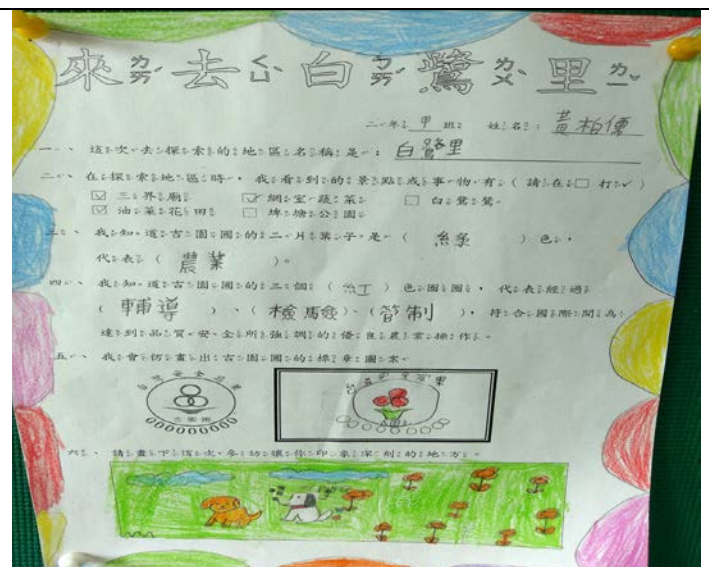 來去白鷺里
二年甲班 姓名：黃柏儒
一、這次去探索的地區名稱是：白鷺里
二、在探索地區時，我看到的景點或事物有（請在□打✓）
☑三界廟 ☑網室蔬菜 □白鷺鷥
☑油菜花田 □埤塘公園
三、我知道吉園圃的二片葉子是（綠）色，
代表（農業）。
四、我知道吉園圃的三個（紅）色圈圈，代表經過
（輔導）、（檢驗）、（管制），符合國際間為
達到品質安全所強調的優良農業操作。
五、我會仿畫出吉園圃的標章圖案
吉園圃
六、請畫下這次參訪讓你印象深刻的地方。